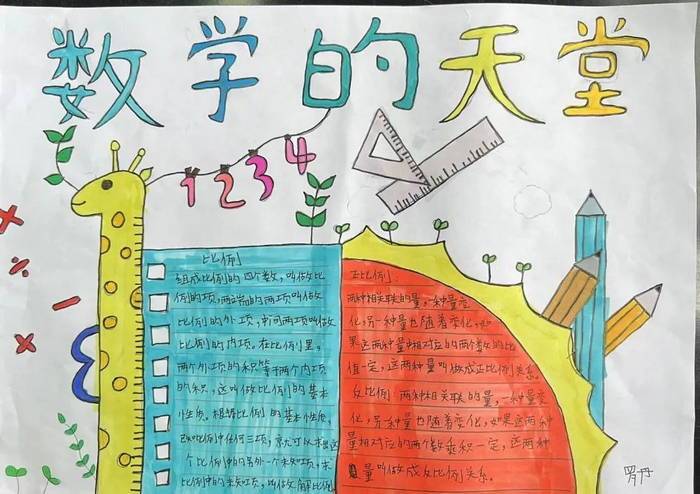 数学的天堂
1 2 3 4
比例
组成比例的四个数,叫做比
例的项,两端的两项叫做
比例的外项,中间两项叫做
比例的内项。在比例里,
两个外项的积等于两个内项
的积,这叫做比例的基本
性质。根据比例的基本性质,
如果已知比例中任何三项,就可以求出这
个比例中的另外一个未知项,求
比例中的未知项,叫做解比例。
正比例:
两种相关联的量,一种量变
化,另一种量也随着变化,如
果这两种量中相对应的两个数的比
值一定,这两种量叫做成正比例关系。
反比例:两种相关联的量,一种量变
化,另一种量也随着变化,如果这两种
量相对应的两个数乘积一定,这两种
量叫做成反比例关系。